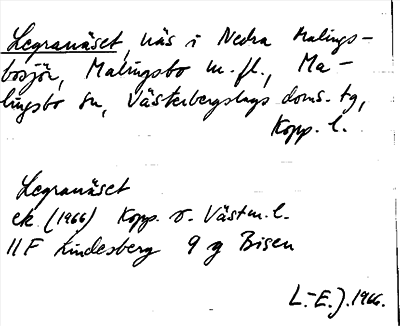 Legranäset, näs i Nedra Malings-
bosjön, Malingsbo m.fl., Ma-
lingsbo sn, Västerbergslags doms. tg,
Kopp. l.
Legranäset
ek. (1966) Kopp. o. Västm. l.
11 F Lindesberg 9 g Bisen
L.-E. J. 1966.